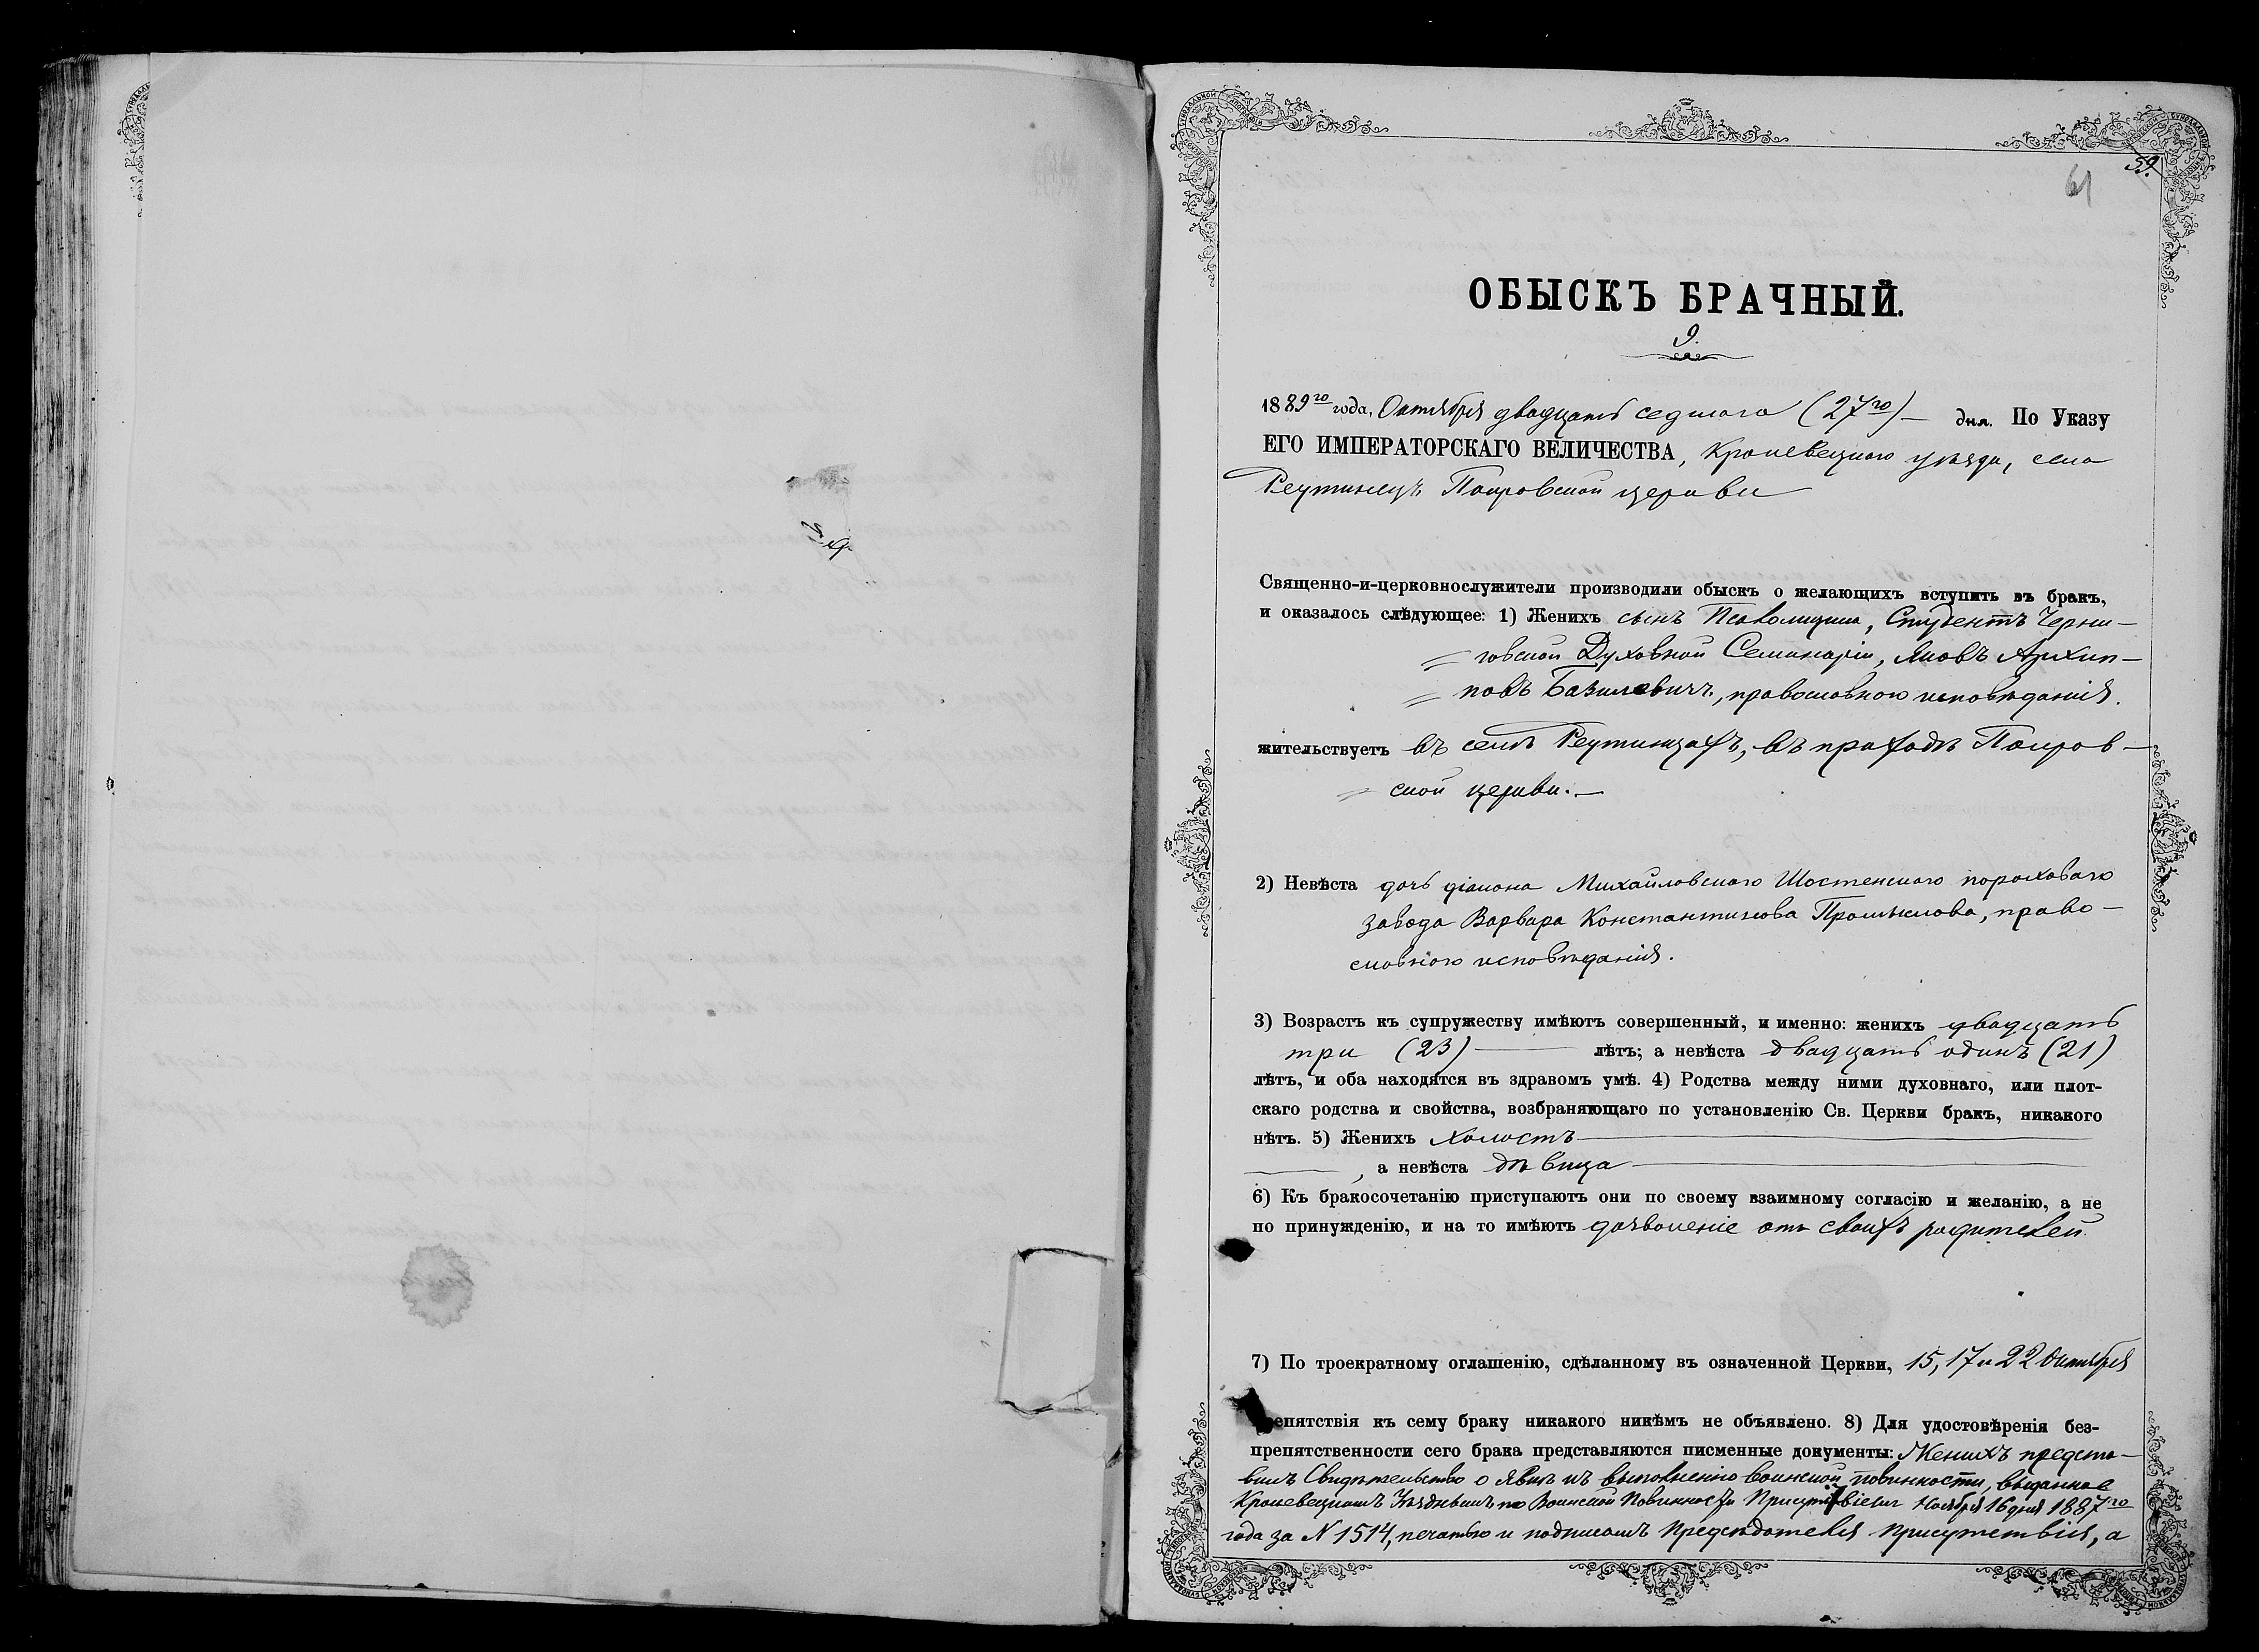 59.
61
ОБЫСКЪ БРАЧНЫЙ.
9.
1889го года, Октября двадцать седьмаго (27го) — дня. По Указу
ЕГО ИМПЕРАТОРСКАГО ВЕЛИЧЕСТВА, Кролевецкаго уѣзда, села
Реутинецъ Покровской церкви
Священно-и-церковнослужители производили обыскъ о желающихъ вступить въ бракъ,
и оказалось слѣдующее: 1) Женихъ сынъ Псаломщика, Студентъ Черни-
говской Духовной Семинаріи, Яковъ Архип-
повъ Базилевичъ, православнаго исповѣданія.
жительствуетъ въ селѣ Реутинцахъ, въ приходѣ Покров-
ской церкви.—
2) Невѣста дочь діакона Михайловскаго Шостенскаго пороховаго
завода Варвара Константинова Промыслова, право-
славнаго исповѣданія.
3) Возрастъ къ супружеству имѣютъ совершенный, и именно: женихъ двадцать
три (23) — лѣтъ; а невѣста двадцать одинъ (21)
лѣтъ, и оба находятся въ здравомъ умѣ. 4) Родства между ними духовнаго, или плот-
скаго родства и свойства, возбраняющаго по установленію Св. Церкви бракъ, никакого
нѣтъ. 5) Женихъ холостъ —
—, а невѣста дѣвица —
6) Къ бракосочетанію приступаютъ они по своему взаимному согласію и желанію, а не
по принужденію, и на то имѣютъ дозволеніе отъ своихъ родителей.
7) По троекратному оглашенію, сдѣланному въ означенной Церкви, 15, 17 и 22 Октября
препятствія къ сему браку никакого никѣмъ не объявлено. 8) Для удостовѣренія без-
препятственности сего брака представляются писменные документы: Женихъ предста-
вилъ Свидѣтельство о явкѣ къ выполненію воинской повинности, выданное
Кролевецкимъ Уѣзднымъ по Воинской Повинности Присутствіемъ Ноября 16 дня 1887го
года за N 1514, печатью и подписомъ Предсѣдателя присутствія, а